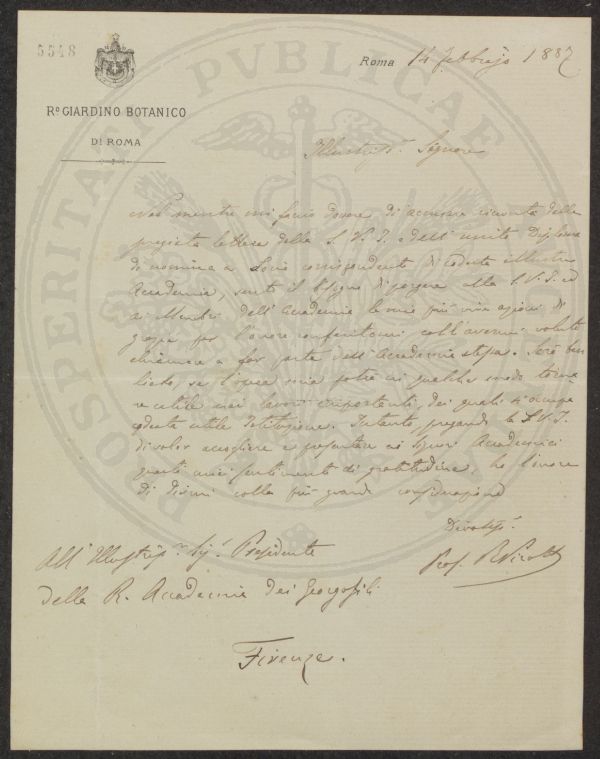 5548
Roma 14 febbrajo 1887
Rº GIARDINO BOTANICO
DI ROMA
Illustriss.º Signore
Nel mentre mi faccio dovere di accusare ricevuta della
pregiata lettera della S. V. I. e dell'unito Diploma
di nomina a Socio corrispondente di codesta illustre
Accademia, sento il bisogno di porgere alla S. V. I. ed
ai Membri dell'Accademia le mie più vive azioni di
grazia per l'onore conferitomi coll'avermi voluto
chiamare a far parte dell'Accademia stessa. Sarò ben
lieto, se l'opera mia potrà in qualche modo torna-
re utile nei lavori importanti, dei quali si occupa
codesta utile Istituzione. Intanto, pregando la S. V. I.
di voler accogliere e presentare ai Signori Accademici
questi miei sentimenti di gratitudine, ho l'onore
di dirmi colla più grande considerazione
Divotiss.º
Prof. R. Pirotta
All'Illustriss.º Sig.r Presidente
della R. Accademia dei Georgofili
Firenze.
PROSPERITATI PUBLICAE